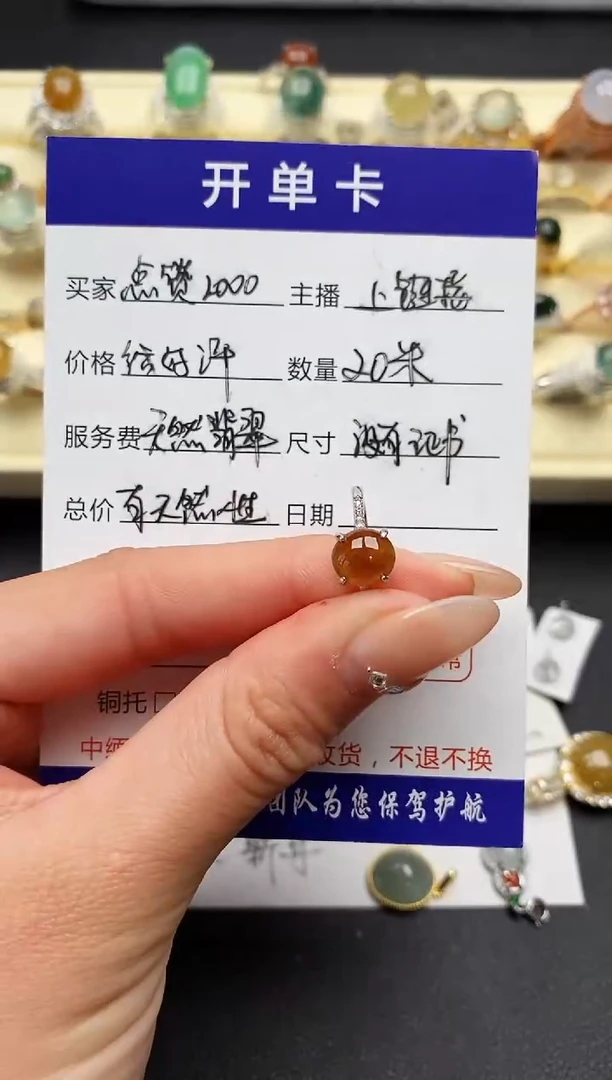 开单卡
买家 点赞2000 主播 卜钮嘉
价格 给好评 数量 20米
服务费 天然翡翠 尺寸 没有证书
总价 有天然性 日期
铜托
中缅 收货，不退不换
团队为您保驾护航